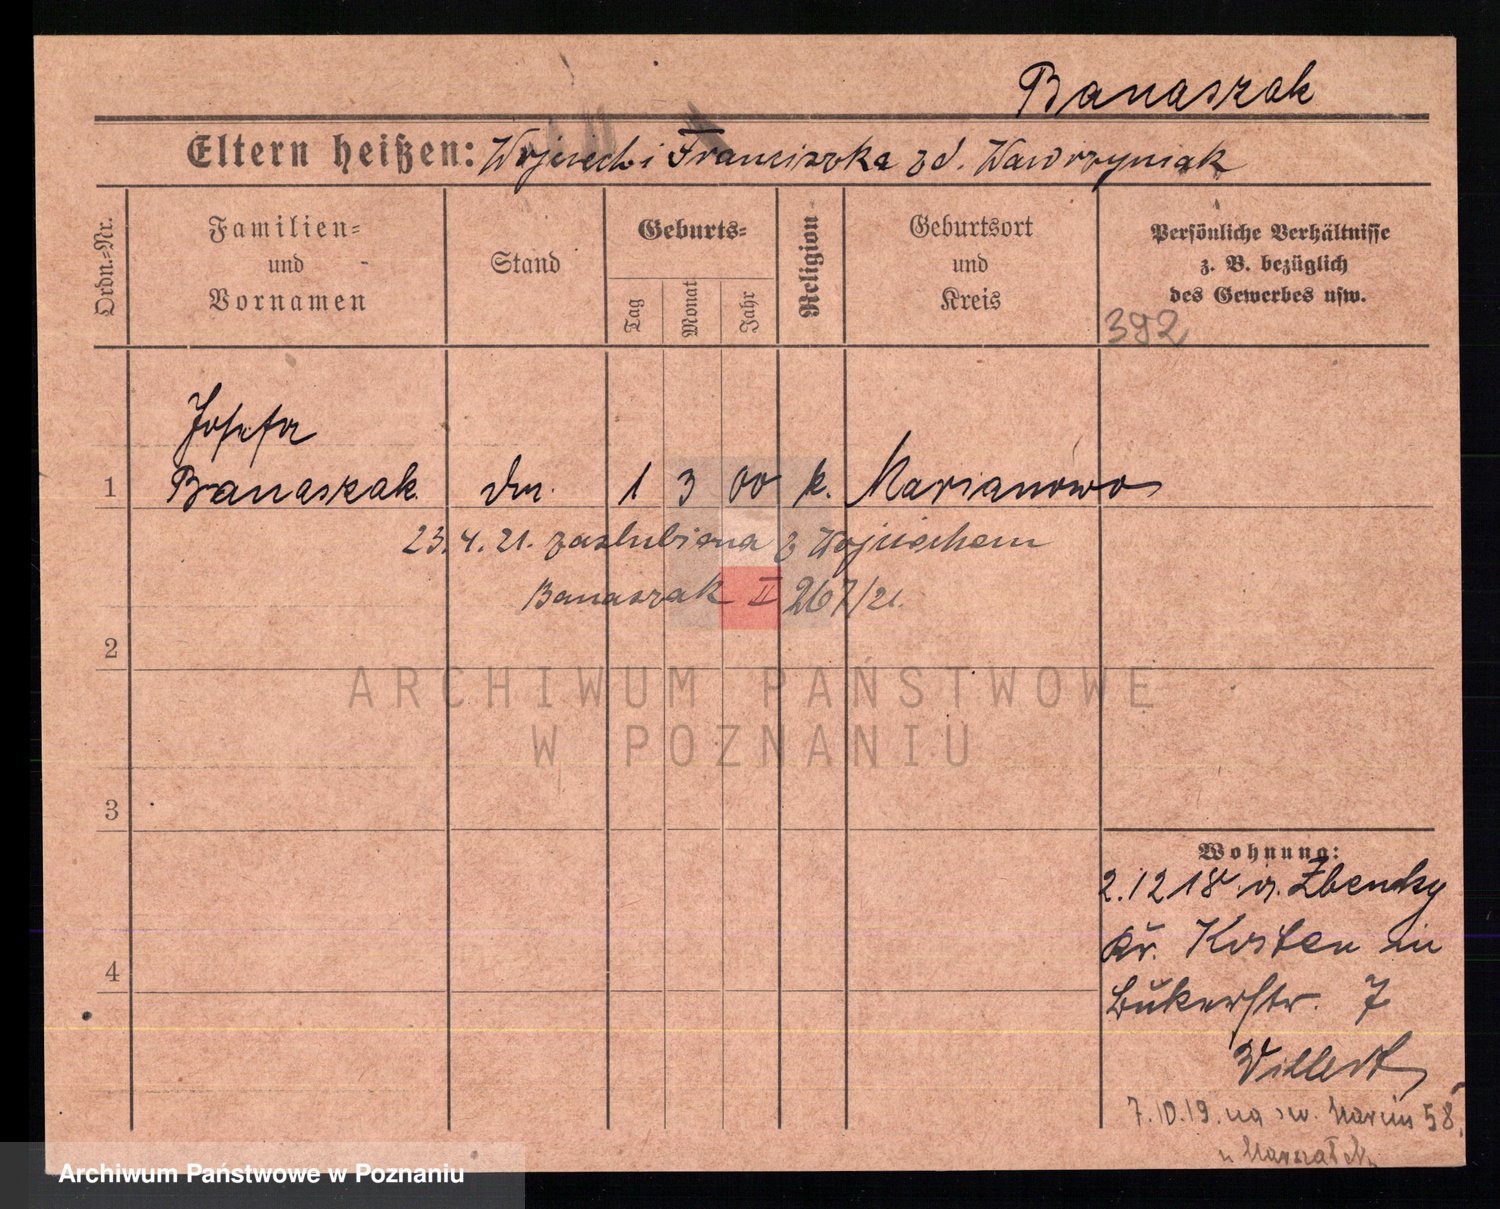 Banaszak
Eltern heißen: Wojciech i Franciszka zd. Wawrzyniak
Ordn.-Nr.
Familien-
und
Vornamen
Stand
Geburts-
Tag
Monat
Jahr
Religion
Geburtsort
und
Kreis
Persönliche Verhältnisse
z. B. bezüglich
des Gewerbes usw.
392
Josefa
1 Banaszak dm. 1 3 00 k. Marianowo
23.4.21. zaslubiona z Wojciechem
Banaszak II 267/21.
2
3
4
Wohnung:
2.12 18 v. Zbenchy
Kr. Kosten in
Bukerstr. 7
Villert
7.10.19. na sw. Marcin 58
u Marszałek
ARCHIWUM PAŃSTWOWE
W POZNANIU
Archiwum Państwowe w Poznaniu